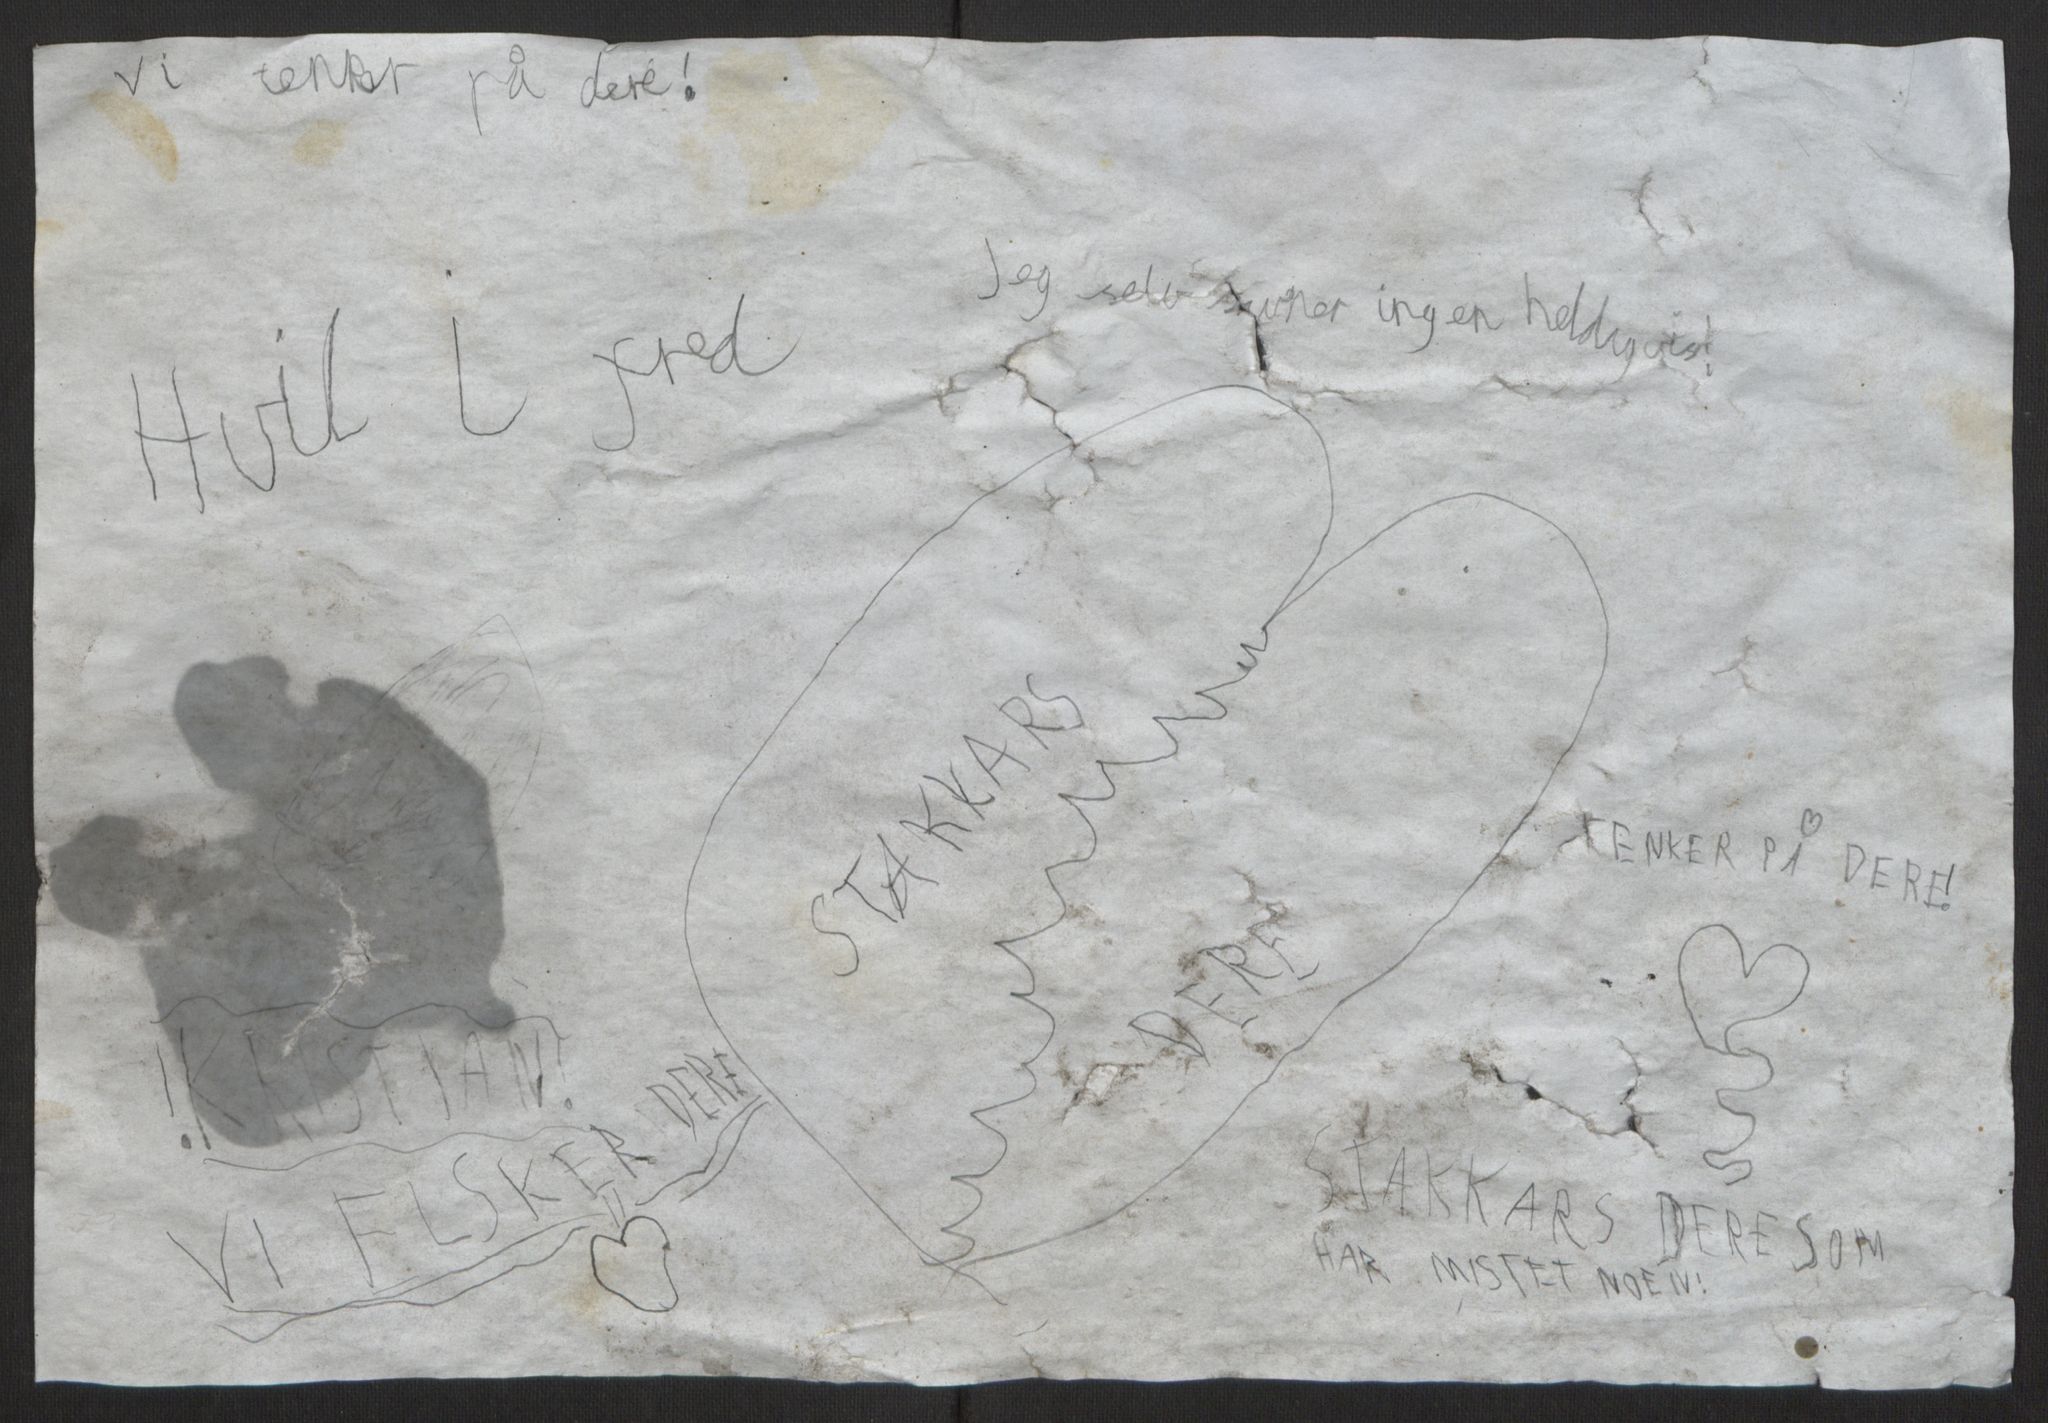 Vi tenker på dere!
Jeg selv savner ingen heldigvis!
Hvil i fred
STAKKARS
DERE
TENKER PÅ DERE!
!KRISTIAN!
VI ELSKER DERE
STAKKARS DERE SOM
HAR MISTET NOEN!